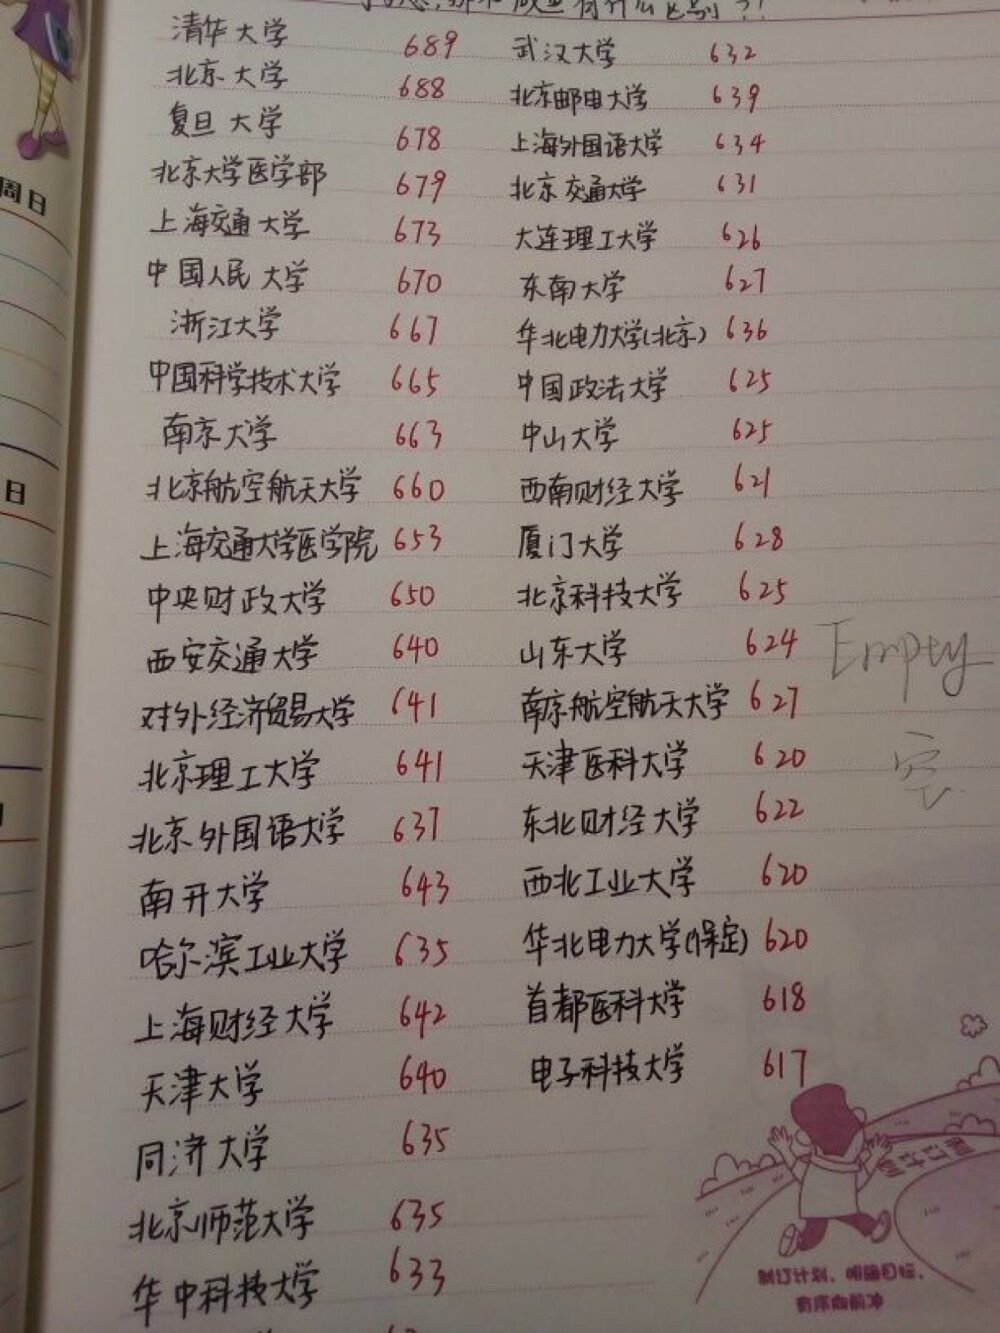 清华大学 689
北京大学 688
复旦大学 678
北京大学医学部 679
上海交通大学 673
中国人民大学 670
浙江大学 667
中国科学技术大学 665
南京大学 663
北京航空航天大学 660
上海交通大学医学院 653
中央财政大学 650
西安交通大学 640
对外经济贸易大学 641
北京理工大学 641
北京外国语大学 637
南开大学 643
哈尔滨工业大学 635
上海财经大学 642
天津大学 640
同济大学 635
北京师范大学 635
华中科技大学 633
武汉大学 632
北京邮电大学 639
上海外国语大学 634
北京交通大学 631
大连理工大学 626
东南大学 627
华北电力大学(北京) 636
中国政法大学 625
中山大学 625
西南财经大学 621
厦门大学 628
北京科技大学 625
山东大学 624
南京航空航天大学 627
天津医科大学 620
东北财经大学 622
西北工业大学 620
华北电力大学(保定) 620
首都医科大学 618
电子科技大学 617
Empty
空
周日
日
制订计划
制订计划、明确目标、
有序向前冲